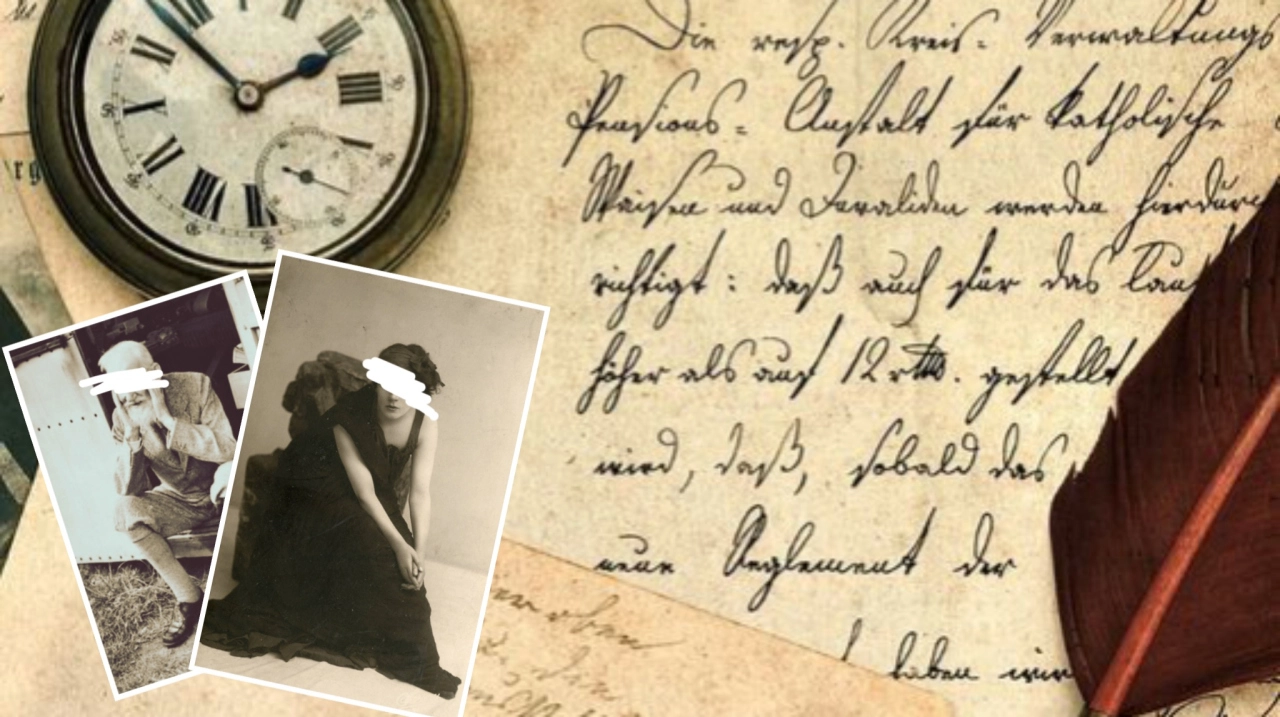 Die resp. Kreis- Verwaltungs
Pensions- Anstalt für katholische
Waisen und Invaliden werden hierdurc
richtigt: daß auch für das lau
höher als auf 12 gestellt
wird, daß, sobald das
neue Reglement der
haben wir